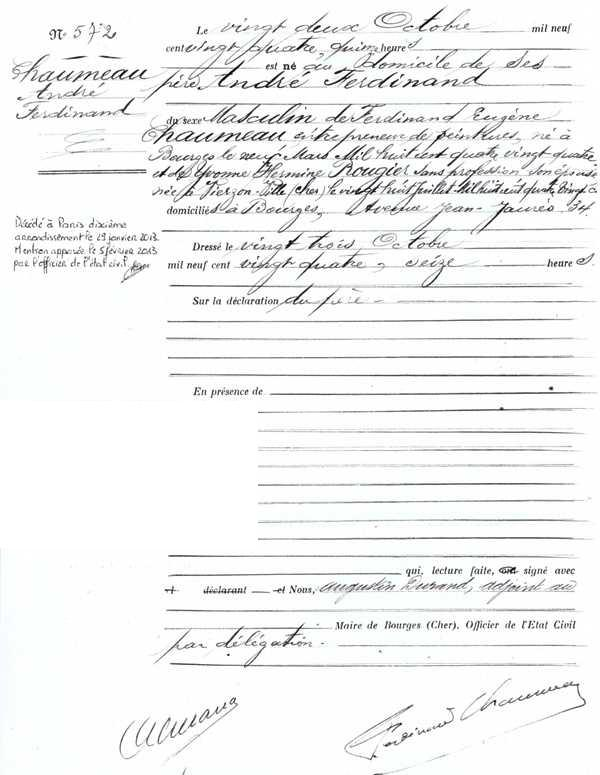 N° 572
Chaumeau
André
Ferdinand
Décédé à Paris dixième
arrondissement le 29 janvier 2013.
Mention apposée le 5 février 2013
par l'officier de l'état civil.
Le vingt deux Octobre mil neuf
cent vingt quatre, quinze heures
est né au Domicile de ses
père André Ferdinand
du sexe Masculin de Ferdinand Eugène
Chaumeau entrepreneur de peintures, né à
Bourges le neuf Mars Mil huit cent quatre vingt quatre
et de Yvonne Hermine Rougier sans profession son épouse
née à Vierzon-Ville (Cher) le vingt huit juillet Mil huit cent quatre vingt
domiciliés à Bourges, Avenue Jean-Jaurès, 34
Dressé le vingt trois Octobre
mil neuf cent vingt quatre, seize heures
Sur la déclaration du père
En présence de
qui, lecture faite, ont signé avec
déclarant et Nous, Augustin Durand, adjoint au
Maire de Bourges (Cher), Officier de l'Etat Civil
par délégation.
Ferdinand Chaumeau